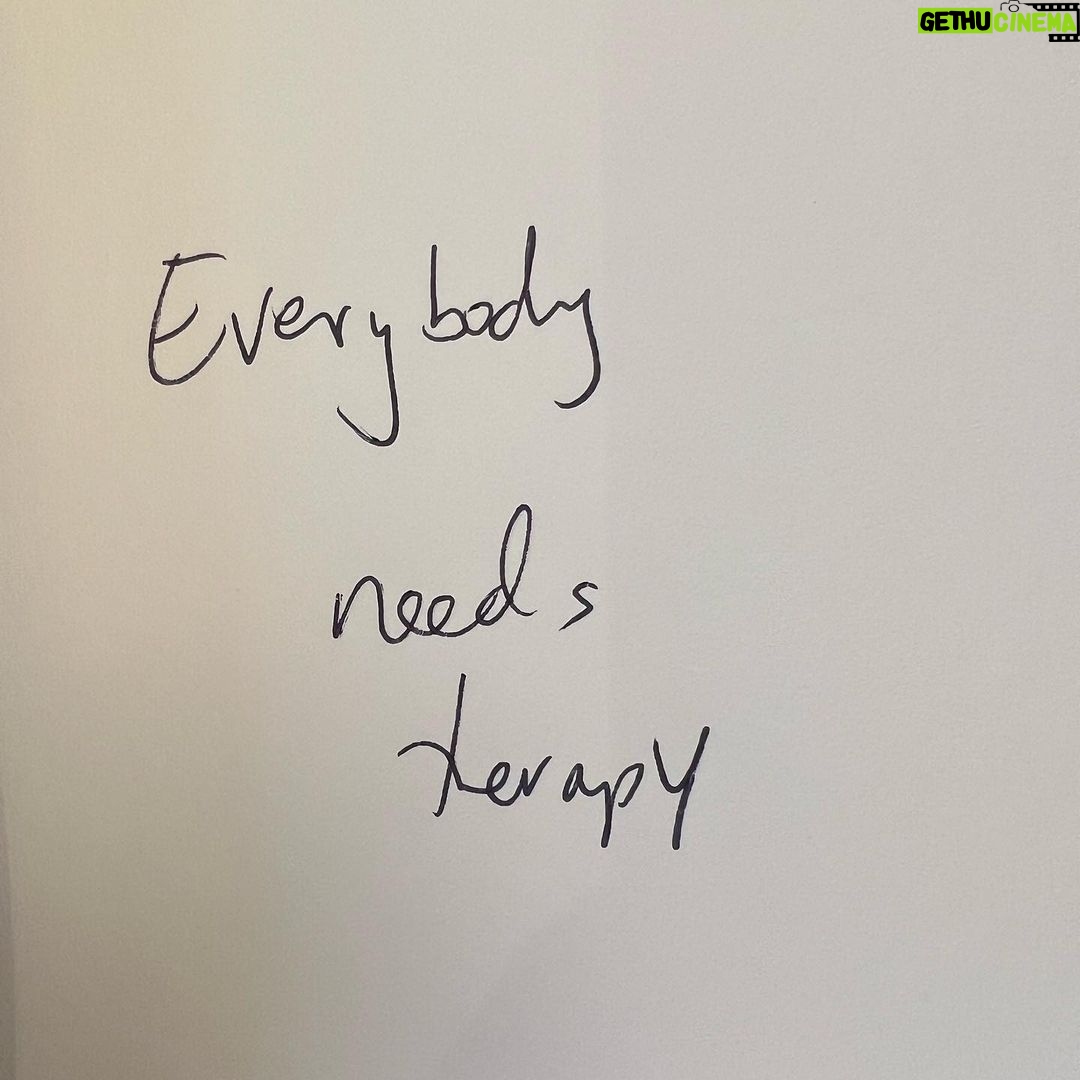 GETHUCINEMA
Everybody
needs
therapy